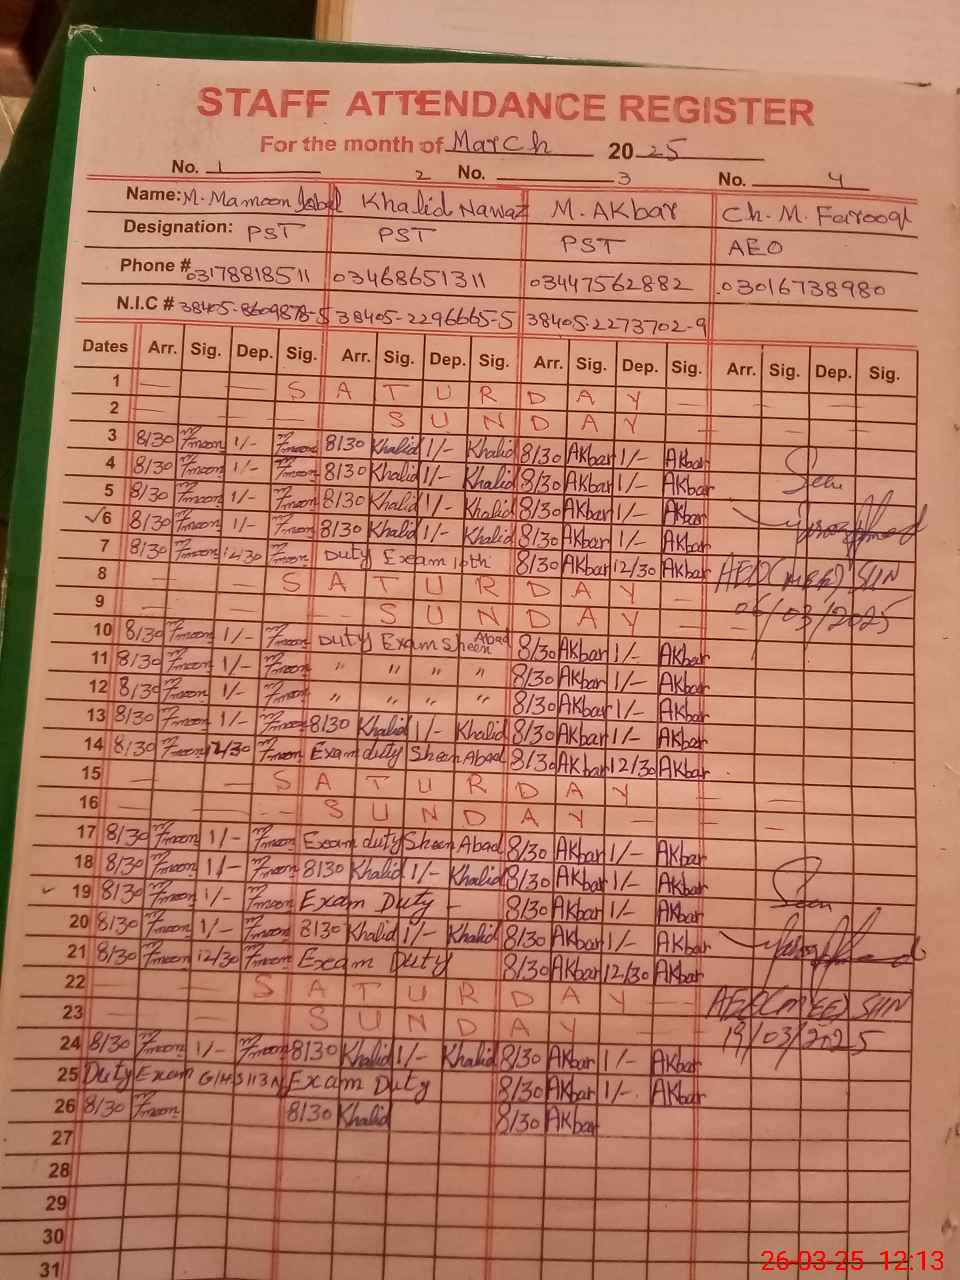 STAFF ATTENDANCE REGISTER
For the month of March 20 25
No. 1 2 No. 3 No. 4
Name: M. Mamoon Iqbal Khalid Nawaz M. AKbar Ch. M. Farooq
Designation: PST PST PST AEO
Phone # 03178818511 03468651311 03447562882 03016738980
N.I.C # 38405-8609878-5 38405-2296665-5 38405-2273702-9
Dates Arr. Sig. Dep. Sig. Arr. Sig. Dep. Sig. Arr. Sig. Dep. Sig. Arr. Sig. Dep. Sig.
1 — — — S A T U R D A Y — —
2 — — — — S U N D A Y — —
3 8/30 1/- 8/30 Khalid 1/- Khalid 8/30 AKbar 1/- AKbar
4 8/30 1/- 8/30 Khalid 1/- Khalid 8/30 AKbar 1/- AKbar
5 8/30 1/- 8/30 Khalid 1/- Khalid 8/30 AKbar 1/- AKbar
✓6 8/30 1/- 8/30 Khalid 1/- Khalid 8/30 AKbar 1/- AKbar
7 8/30 12/30 Duty Exam 10th 8/30 AKbar 12/30 AKbar AEO(MEE) SHN
8 — — — S A T U R D A Y —
9 — — — — — S U N D A Y — — 06/03/2025
10 8/30 1/- Duty Exam Sheen Abad 8/30 AKbar 1/- AKbar
11 8/30 1/- " " " " 8/30 AKbar 1/- AKbar
12 8/30 1/- " " " " 8/30 AKbar 1/- AKbar
13 8/30 1/- 8/30 Khalid 1/- Khalid 8/30 AKbar 1/- AKbar
14 8/30 12/30 Exam duty Sheen Abad 8/30 AKbar 12/30 AKbar
15 — — S A T U R D A Y — — —
16 — — — -- S U N D A Y — — —
17 8/30 1/- Exam duty Sheen Abad 8/30 AKbar 1/- AKbar
18 8/30 1/- 8/30 Khalid 1/- Khalid 8/30 AKbar 1/- AKbar
✓ 19 8/30 1/- Exam Duty – 8/30 AKbar 1/- AKbar Seen
20 8/30 1/- 8/30 Khalid 1/- Khalid 8/30 AKbar 1/- AKbar
21 8/30 12/30 Exam Duty 8/30 AKbar 12/30 AKbar
22 — — — S A T U R D A Y — — AEO(MEE) SHN
23 — — — — S U N D A Y — — 19/03/2025
24 8/30 1/- 8/30 Khalid 1/- Khalid 8/30 AKbar 1/- AKbar
25 Duty Exam Exam Duty 8/30 AKbar 1/-. AKbar
26 8/30 8/30 Khalid 8/30 AKbar
27
28
29
30
31
26-03-25 12:13